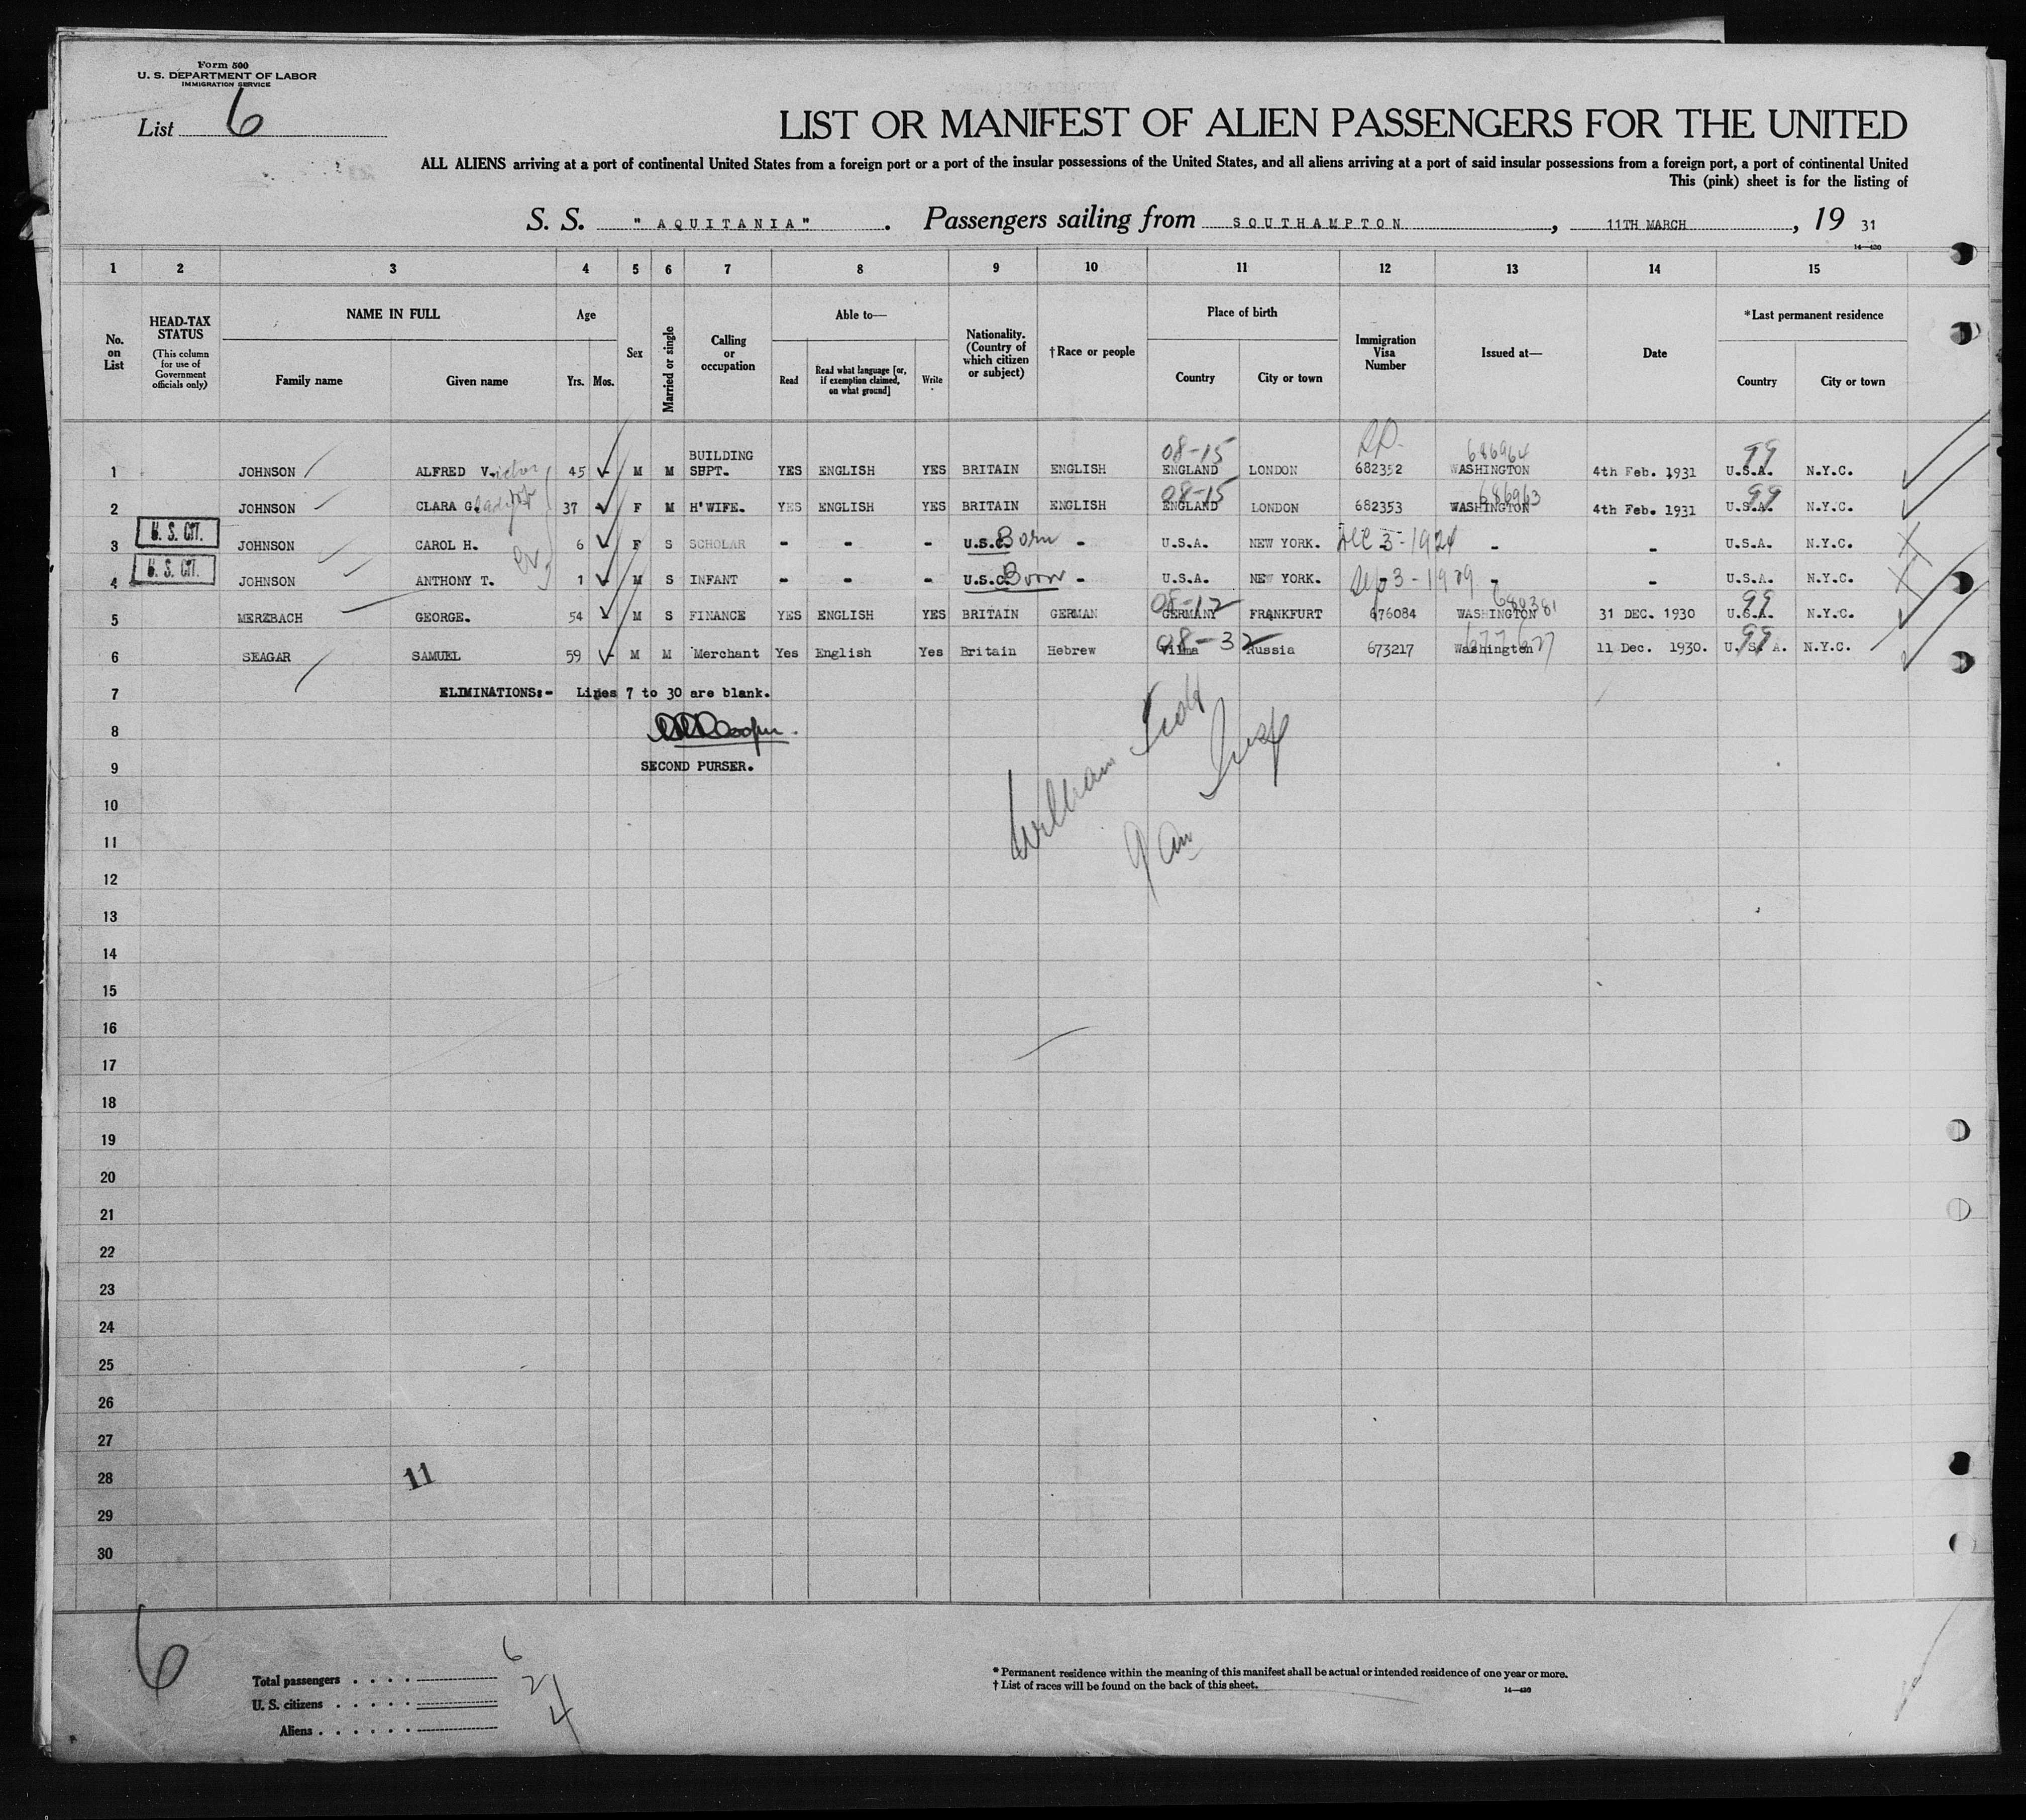 Form 500
U. S. DEPARTMENT OF LABOR
IMMIGRATION SERVICE
List 6
LIST OR MANIFEST OF ALIEN PASSENGERS FOR THE UNITED
ALL ALIENS arriving at a port of continental United States from a foreign port or a port of the insular possessions of the United States, and all aliens arriving at a port of said insular possessions from a foreign port, a port of continental United
This (pink) sheet is for the listing of
S. S. "AQUITANIA". Passengers sailing from SOUTHAMPTON, 11TH MARCH, 19 31
14—430
1 2 3 4 5 6 7 8 9 10 11 12 13 14 15
No. on List
HEAD-TAX STATUS (This column for use of Government officials only)
NAME IN FULL Family name Given name
Age Yrs. Mos.
Sex
Married or single
Calling or occupation
Able to— Read Read what language [or, if exemption claimed, on what ground] Write
Nationality. (Country of which citizen or subject)
†Race or people
Place of birth Country City or town
Immigration Visa Number
Issued at—
Date
*Last permanent residence Country City or town
08-15 686964 99
1 JOHNSON ALFRED Victor 45 M M BUILDING SUPT. YES ENGLISH YES BRITAIN ENGLISH ENGLAND LONDON 682352 WASHINGTON 4th Feb. 1931 U.S.A. N.Y.C.
08-15 686963 99
2 JOHNSON CLARA G. 37 F M H'WIFE. YES ENGLISH YES BRITAIN ENGLISH ENGLAND LONDON 682353 WASHINGTON 4th Feb. 1931 U.S.A. N.Y.C.
U. S. CIT.
3 JOHNSON CAROL H. 6 F S SCHOLAR - - - U.S.C. Born - U.S.A. NEW YORK. Dec 3-1924 - - U.S.A. N.Y.C.
U. S. CIT.
4 JOHNSON ANTHONY T. 1 M S INFANT - - - U.S.C. Born - U.S.A. NEW YORK. Sep 3-1929 - - U.S.A. N.Y.C.
08-12 680381 99
5 MERZBACH GEORGE. 54 M S FINANCE YES ENGLISH YES BRITAIN GERMAN GERMANY FRANKFURT 676084 WASHINGTON 31 DEC. 1930 U.S.A. N.Y.C.
08-32 677677 99
6 SEAGAR SAMUEL 59 M M Merchant Yes English Yes Britain Hebrew Vilna Russia 673217 Washington 11 Dec. 1930. U.S.A. N.Y.C.
7 ELIMINATIONS:- Lines 7 to 30 are blank.
8
9 SECOND PURSER.
William
10
11
12
13
14
15
16
17
18
19
20
21
22
23
24
25
26
27
28 11
29
30
6
Total passengers . . . . 6
U. S. citizens . . . . . 2
Aliens . . . . . . 4
* Permanent residence within the meaning of this manifest shall be actual or intended residence of one year or more.
† List of races will be found on the back of this sheet.
14—430